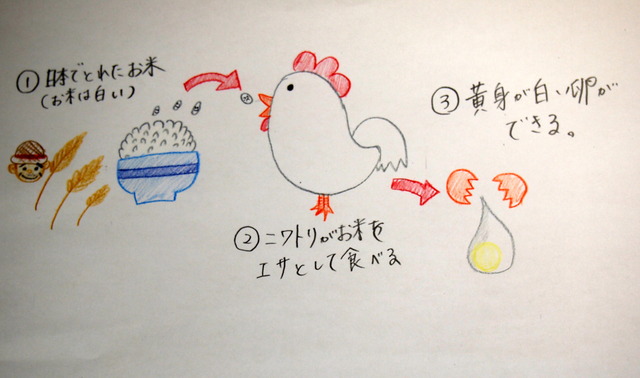 ① 日本でとれたお米
(お米は白い)
② ニワトリがお米を
エサとして食べる
③ 黄身が白い卵が
できる。